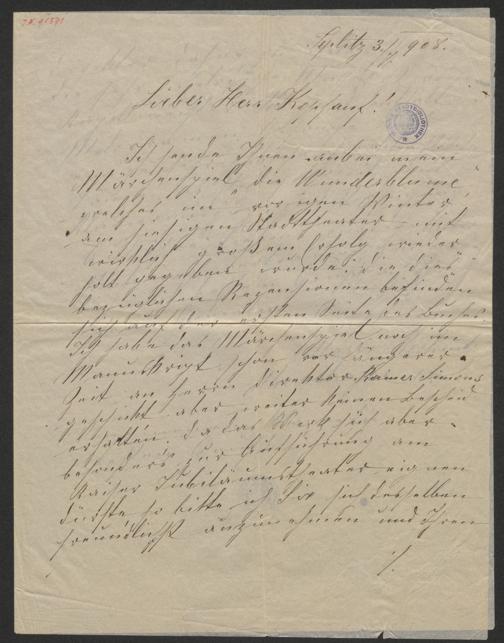 J.N. 91571
Teplitz 3./7 908.
Lieber Herr Kopfauf!
Ich sende Ihnen anbei mein
Märchenspiel „die Wunderblume“
welches im vorigen Winter
am hiesigen Stadttheater mit
wirklich großem Erfolg wieder
holt gegeben wurde; die dies
bezüglichen Rezensionen befinden
sich auf der ersten Seite des Buches
Ich habe das Märchenspiel noch im
Manuskript schon vor längerer
Zeit an Herrn Direktor Rainer Simons
geschickt aber weiter keinen Bescheid
erhalten. Da das Werk sich aber
besonders zur Aufführung am
Kaiser Jubiläumstheater eignen
dürfte so bitte ich Sie sich desselben
freundlichst anzunehmen und Ihren
./.